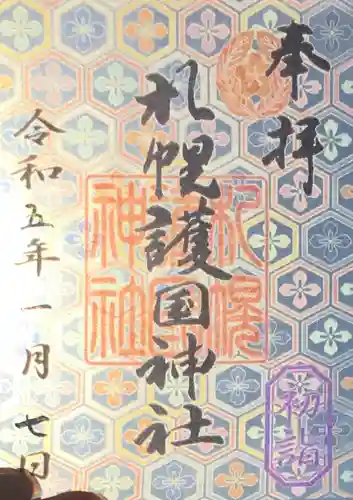 奉拝
札幌護国神社
令和五年一月七日
初詣